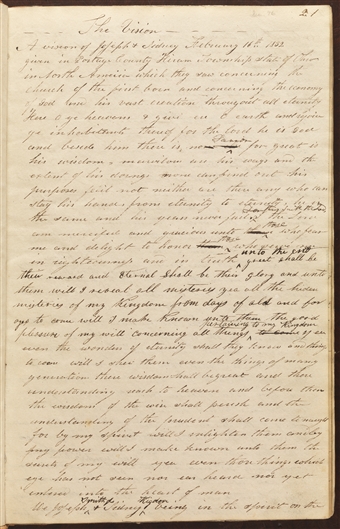 21
The Vision
A vision of Joseph & Sidney February 16th 1832
given in Portage County Hiram Township State of Ohio
in North America which they saw concerning the
church of the first born and concerning the economy
of God and his vast creation throughout all eternity
Hear O ye heavens & give ear O earth and rejoice
ye inhabitants thereof for the Lord he is God
Saviour
and beside him there is no for great is
his wisdom marvelous are his ways and the
extent of his doings none can find out his
purposes fail not neither are there any who can
stay his hand from eternity to eternity he is
the same and his years never fail the Lord
am merciful and gracious unto who fear
me and delight to honor who serve me
in righteousness and in truth unto the end
great shall be
their reward and Eternal shall be their glory and unto
them will I reveal all mysteries yea all the hidden
mysteries of my Kingdom from days of old and for
ages to come will I make known unto them the good
pertaining to my Kingdom
pleasure of my will concerning all things yea
even the wonders of eternity shall they know and things
to come will I shew them even the things of many
generations their wisdom shall be great and their
understanding reach to heaven and before them
the wisdom of the wise shall perish and the
understanding of the prudent shall come to naught
for by my spirit will I enlighten them and by
my power will I make known unto them the
secrets of my will yea even those things which
eye has not seen nor ear heard nor yet
entered into the heart of man
Smith Jr Rigdon
We Joseph & Sidney being in the spirit on the